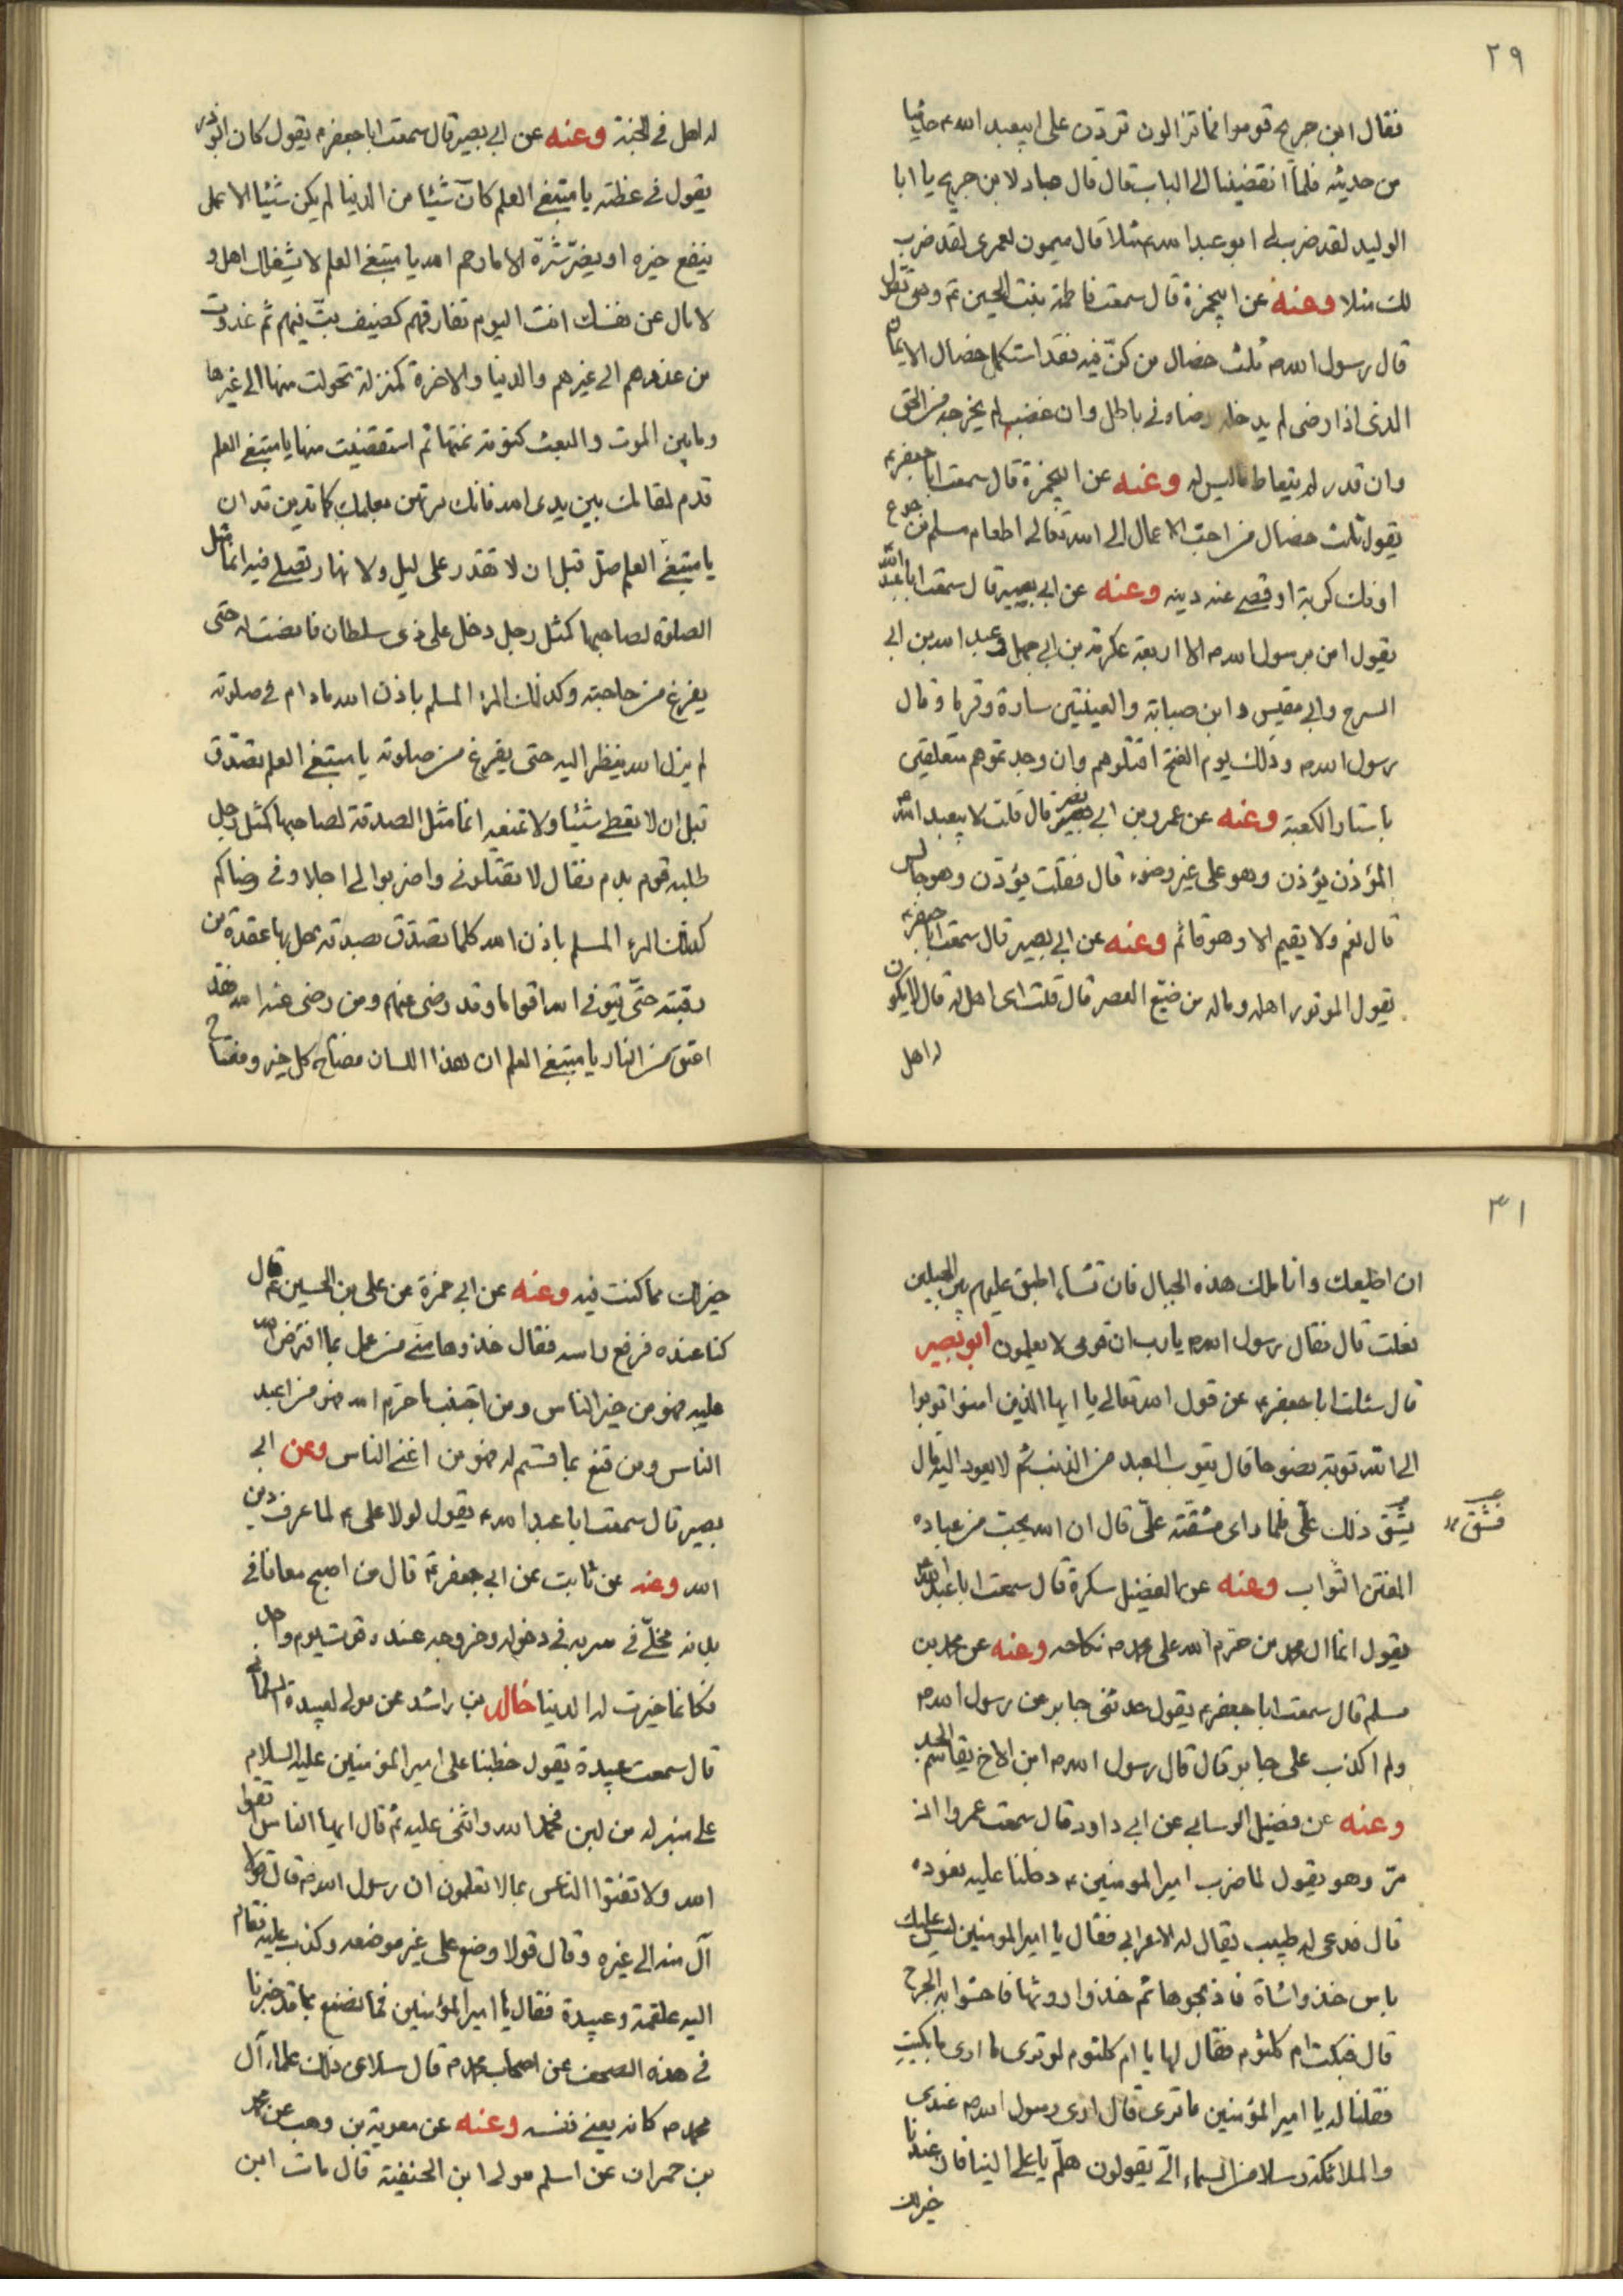 ٢٩
فقال ابن جريح قوموا فما تزالون تردّن على ابيعبد الله ع حديثا
من حديثه فلما انقضينا الى الباب قال قال عباد لابن جريح يا ابا
الوليد لقد ضرب لك ابو عبد الله ع مثلا قال ميمون لعمرى لقد ضرب
لك مثلا وعنه عن ابيحمزة قال سمعت فاطمة بنت الحسين ع وهى تقول
قال رسول الله ص ثلث خصال من كنّ فيه فقد استكمل خصال الايمان
الذى اذا رضى لم يدخله رضاه فى باطل وان غضب لم يخرجه من الحق
وان قدر لم يتعاط ما ليس له وعنه عن ابيحمزة قال سمعت ابا جعفر ع
يقول ثلث خصال من احب الاعمال الى الله تعالى اطعام مسلم من جوع
او فك كربة او قضى عنه دينه وعنه عن ابى بصير قال سمعت ابا عبد الله
يقول امن رسول الله ص الا اربعة عكرمة بن ابى جهل وعبد الله بن ابى
السرح وابى مقيس وابن صبابة والعينتين سادة وقربا وقال
رسول الله ص وذلك يوم الفتح اقتلوهم وان وجدتموهم متعلقين
باستار الكعبة وعنه عن عمرو بن ابى نصر قال قلت لابيعبد الله
المؤذن يؤذن وهو على غير وضوء قال فقلت يؤذن وهو جالس
قال نعم ولا يقيم الا وهو قائم وعنه عن ابى بصير قال سمعت ابا جعفر ع
يقول الموتور اهله وماله من ضيّع العصر قال قلت اى اهل له قال لا يكون
له اهل
له اهل فى الجنة وعنه عن ابى بصير قال سمعت ابا جعفر ع يقول كان ابو ذر
يقول فى عظته يا مبتغى العلم كانّ شيئا من الدنيا لم يكن شيئا الا عمل
ينفع خيره او يضرّ شرّه الا ما رحم الله يا مبتغى العلم لا يشغلك اهل و
لا مال عن نفسك انت اليوم تفارقهم كضيف بتّ فيهم ثم غدوت
من عندهم الى غيرهم والدنيا والاخرة كمنزلة تحولت منها الى غيرها
وما بين الموت والبعث كنومة نمتها ثم استيقظت منها يا مبتغى العلم
قدم لمقامك بين يدى الله فانك مرتهن بعملك كما تدين تدان
يا مبتغى العلم صلّ قبل ان لا تقدر على ليل ولا نهار تصلى فيه انما مثل
الصلوة لصاحبها كمثل رجل دخل على ذى سلطان فانصت له حتى
يفرغ من حاجته وكذلك المرء المسلم باذن الله مادام فى صلوته
لم يزل الله ينظر اليه حتى يفرغ من صلوته يا مبتغى العلم تصدّق
قبل ان لا تعطى شيئا ولا تمنعه انما مثل الصدقة لصاحبها كمثل رجل
طلبه قوم بدم فقال لا تقتلونى واضربوا لى اجلا وفى رضاكم
كذلك المرء المسلم باذن الله كلما تصدّق بصدقة حل بها عقدة من
رقبته حتّى يتوفى الله اقواما وقد رضى عنهم ومن رضى عنه الله فقد
اعتق من النار يا مبتغى العلم ان هذا اللسان مفتاح كل خير ومفتاح
٣١
ان اطيعك وانا ملك هذه الجبال فان تشاء اطبق عليهم بين الجبلين
فعلت قال فقال رسول الله ص يا رب ان قومى لا يعلمون ابو بصير
قال سئلت ابا جعفر ع عن قول الله تعالى يا ايها الذين امنوا توبوا
الى الله توبة نصوحا قال يتوب العبد من الذنب ثم لا يعود اليه قال
يشقّ ذلك علىّ فلما راى مشقّته علىّ قال ان الله يحبّ من عباده
فشقّ
المفتن التواب وعنه عن الفضيل سكرة قال سمعت ابا عبد الله
يقول انما ال محمد من حرّم الله على محمد ص نكاحه وعنه عن محمد بن
مسلم قال سمعت ابا جعفر ع يقول حدثنى جابر عن رسول الله ص
ولم اكذب على جابر قال قال رسول الله ص ابن الاخ يقاسم الجد
وعنه عن فضيل الرسانى عن ابى داود قال سمعت عمروا ان
مرّ وهو يقول لما ضرب امير المومنين ع دخلنا عليه نعوده
قال فدعى له طبيب يقال له الاعرابى فقال يا امير المومنين ليس عليك
باس خذوا شاة فاذبحوها ثم خذوا روثها فاحشوا به الجرح
قال فبكت ام كلثوم فقال لها يا ام كلثوم لو ترى ما ارى ما بكيت
فقلنا له يا امير المؤمنين ما ترى قال ارى رسول الله ص عندى
والملائكة رسلا من السماء الىّ يقولون هلمّ يا على الينا فان عندنا
خير لك
خير لك مما كنت فيه وعنه عن ابى حمزة عن على بن الحسين ع قال
كنا عنده فرفع راسه فقال خذوها منّى من عمل بما افترض الله
عليه فهو من خير الناس ومن اجتنب ما حرّم الله فهو من اعبد
الناس ومن قنع بما قسم له فهو من اغنى الناس وعن ابى
بصير قال سمعت ابا عبد الله ع يقول لولا على ع لما عرف دين
الله وعنه عن ثابت عن ابى جعفر ع قال من اصبح معافا فى
بدنه مخلّى فى سربه فى دخوله وخروجه عنده قوت يوم واحد
فكانما خيرت له الدنيا خالد بن راشد عن مولى لعبيدة السلمانى
قال سمعت عبيدة يقول خطبنا على امير المؤمنين عليه السلام
على منبر له من لبن فحمد الله واثنى عليه ثم قال ايها الناس اتقوا
الله ولا تفتوا الناس بما لا تعلمون ان رسول الله ص قال قولا
آل منه الى غيره وقال قولا وضع على غير موضعه وكذب عليه فقام
اليه علقمة وعبيدة فقال يا امير المؤمنين فما نصنع بما قد خبرنا
فى هذه الصحف عن اصحاب محمد ص قال سلا عن ذلك علماء آل
محمد ص كانه يعنى نفسه وعنه عن معوية بن وهب عن محمد
بن حمران عن اسلم مولى ابن الحنفية قال مات ابن